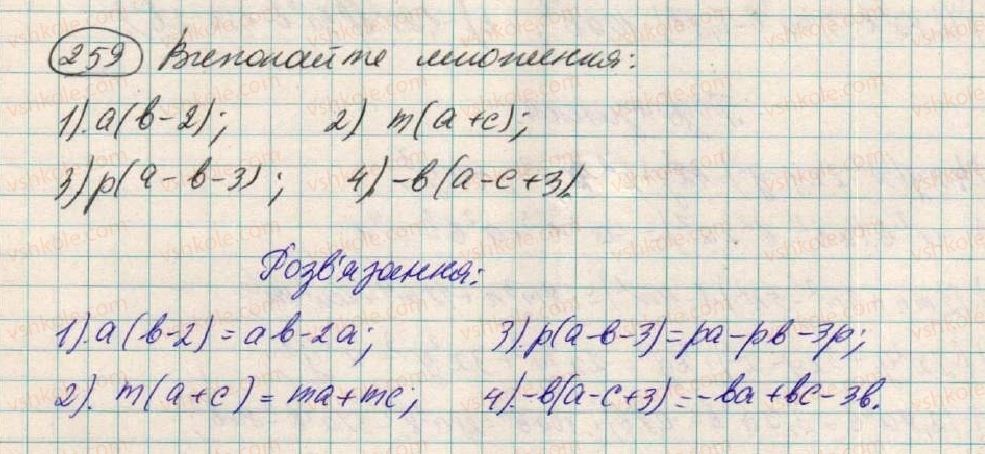 259 Виконайте множення:
1). a(b-2); 2) m(a+c);
3) p(a-b-3); 4) -b(a-c+3).
Розв'язання:
1). a(b-2) = ab-2a; 3). p(a-b-3)=pa-pb-3p;
2). m(a+c) = ma+mc; 4). -b(a-c+3) = -ba+bc-3b.